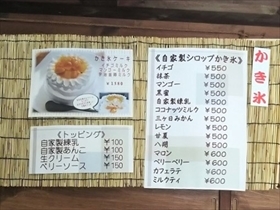 かき氷ケーキ
《トッピング》
自家製練乳 ¥100
自家製あんこ ¥100
生クリーム ¥150
ベリーソース ¥150
《自家製シロップかき氷》
イチゴ ¥550
抹茶 ¥500
マンゴー ¥500
黒蜜 ¥500
自家製練乳 ¥500
ココナッツミルク ¥500
三ヶ日みかん ¥500
レモン ¥500
甘夏 ¥500
八朔 ¥500
マロン ¥600
ベリーベリー ¥600
カフェラテ ¥600
ミルクティ ¥600
かき氷